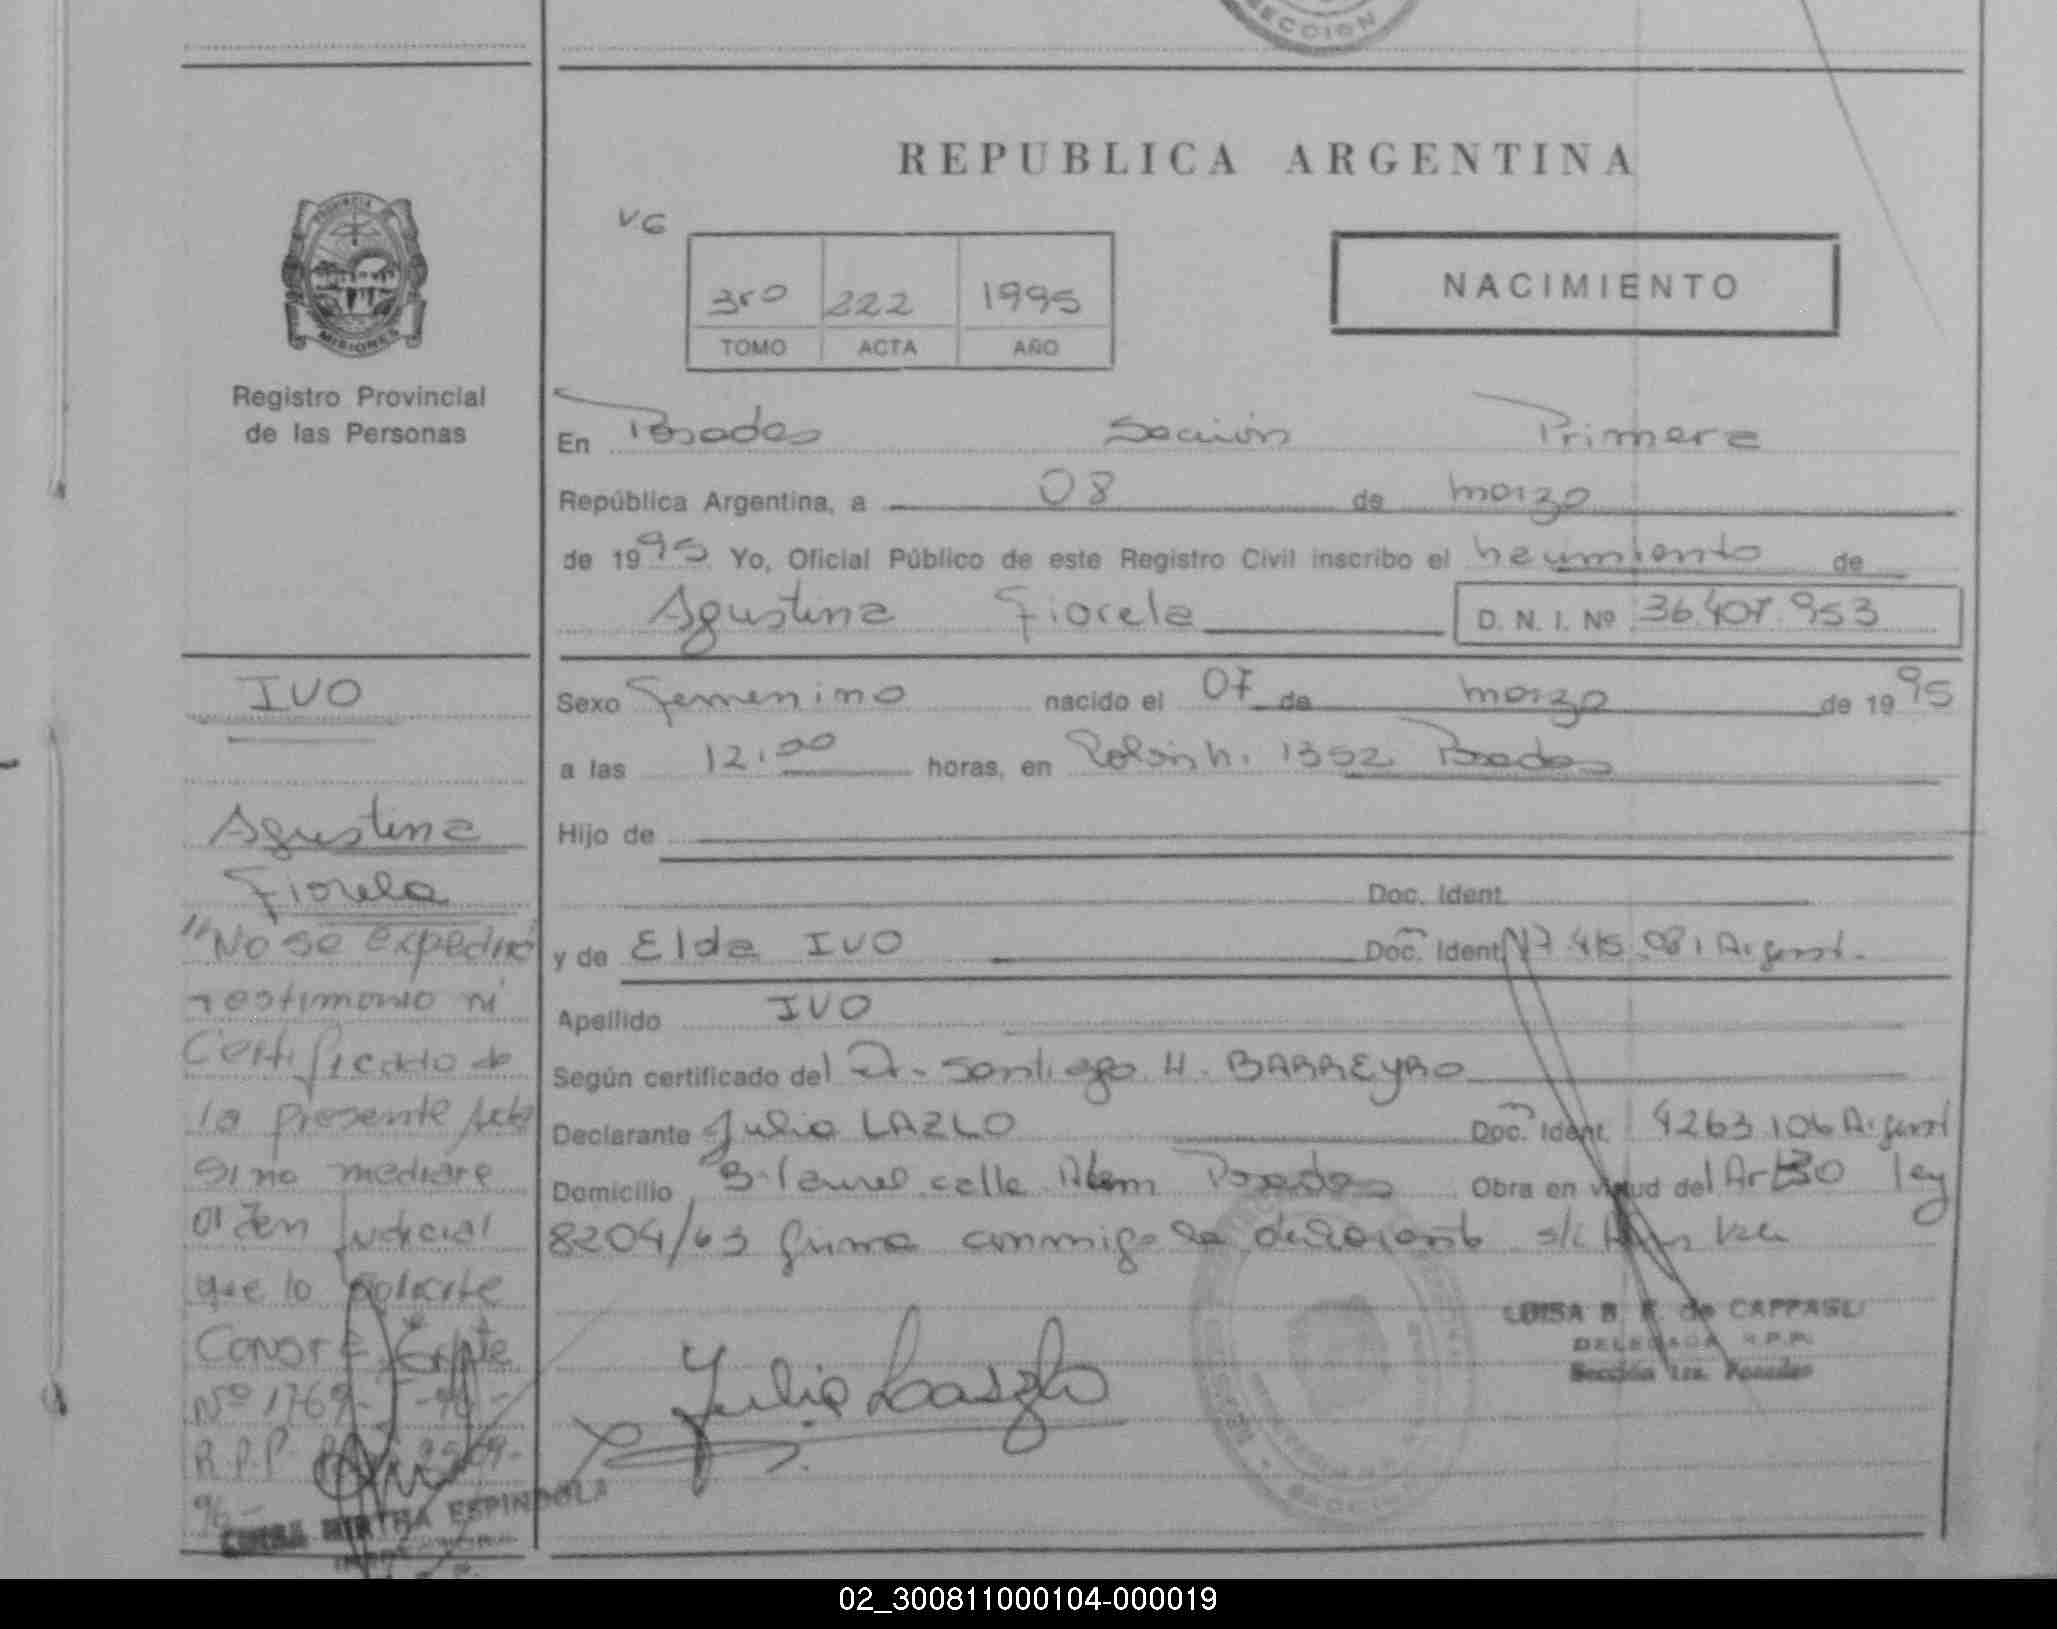 SECCION
REPUBLICA ARGENTINA
PROVINCIA DE
MISIONES
VG
3ro 222 1995
TOMO ACTA AÑO
NACIMIENTO
Registro Provincial
de las Personas
En Posadas Sección Primera
República Argentina, a 08 de marzo
de 1995 Yo, Oficial Público de este Registro Civil inscribo el nacimiento de
Agustina Fiorela D. N. I. Nº 36.407.953
IVO
Sexo femenino nacido el 07 de marzo de 1995
a las 12.00 horas, en 1352 Posadas
Agustina
Fiorela
Hijo de
Doc. Ident.
y de Elda IVO Doc. Ident. Argent.
Apellido IVO
Según certificado del Dr. Santiago H. BARREYRO
Declarante Julio LAZLO Doc. Ident. 4263106 Argent
Domicilio calle Alem Posadas Obra en virtud del Art 30 ley
8204/63 firma conmigo la declarante
"No se expedirá
Testimonio ni
Certificado de
la presente Acta
si no mediare
orden Judicial
que lo solicite
Nº 1769-
R.P.P.
96-
Julio Laszlo
LUISA B. de CAPPAGLI
DELEGADA R.P.P.
Sección 1ra. Posadas
MIRTHA ESPINDOLA
02_300811000104-000019